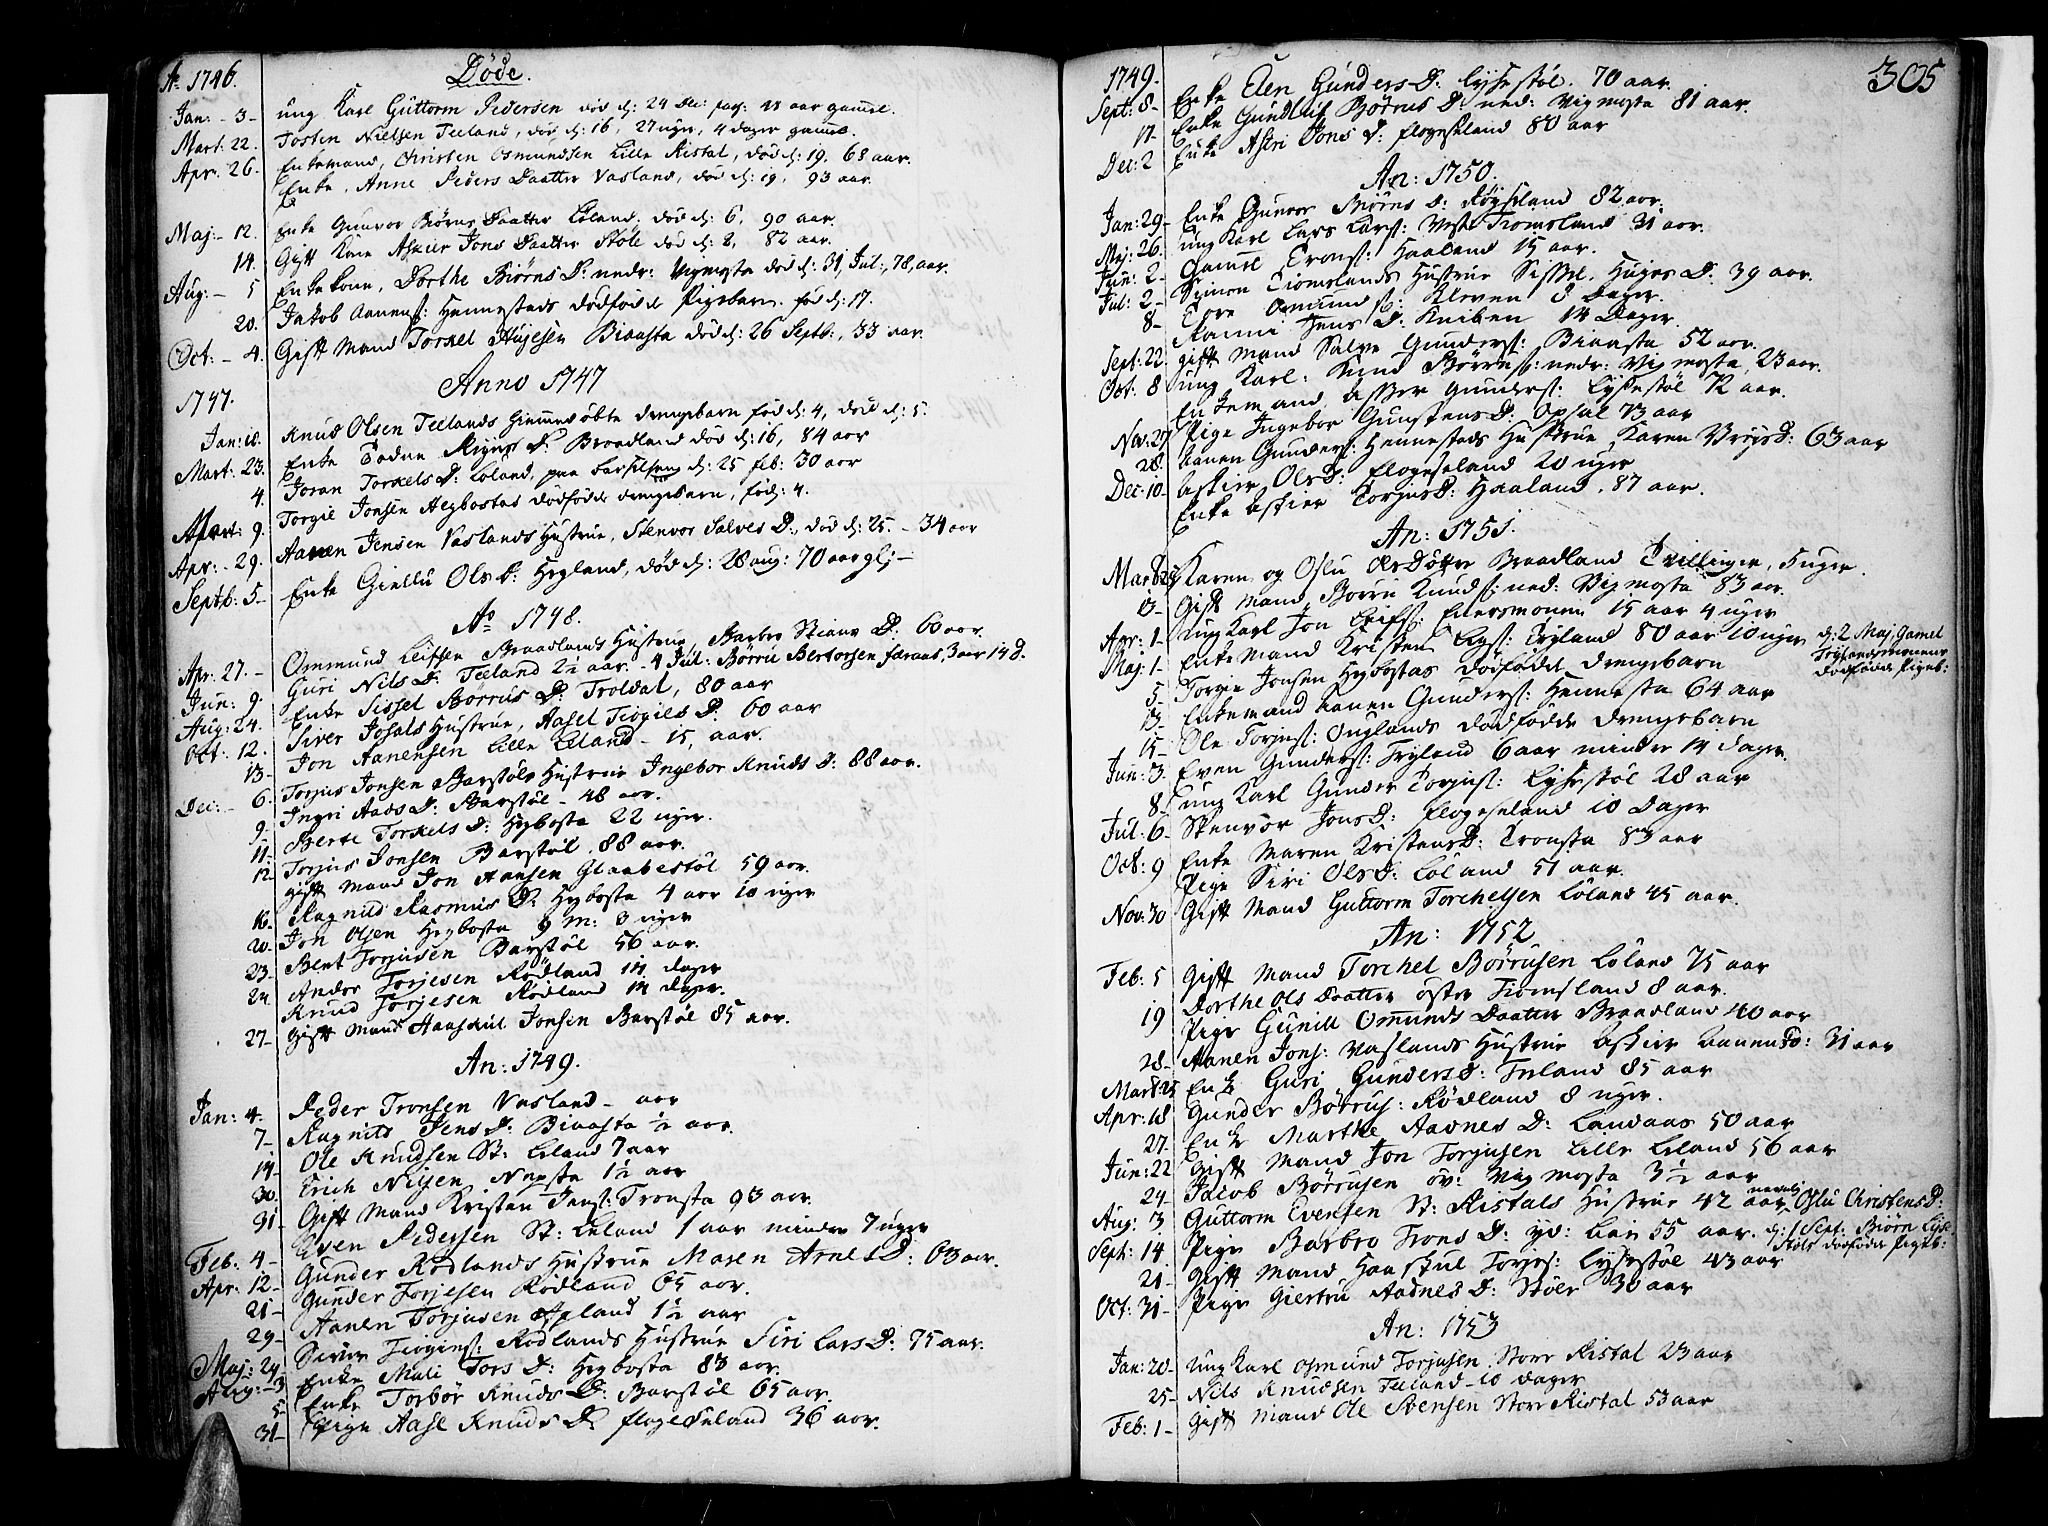 Ao 1746. Døde.
Jan: 3 - ung Karl Guttorm Pedersen død d: 24 Dec: 18 aar gaml.
Mart: 22. Josten Nielsen Teeland, død d: 16, 27 uger, 4 dager gaml.
Apr. 26. Enkemand, Christen Osmundsen Lille Ristal, død d: 19. 68 aar.
Enke, Anne Peders Daatter Vasland, død d: 19, 93 aar.
Maj - 12. Enke Gunvor Biørns Daatter Løland. død d: 6, 90 aar.
14. Gift Kone Askier Jons Daatter Støle død d: 8, 82 aar.
Aug: - 5 Enkekone, Dorthe Biørns D: nedr: Vigmosta død d: 31, Jul:, 78, aar.
20. Jakob Aanens: Hennestads dødføde Pigebarn. fød d: 17.
Oct: - 4. Gift Mand Torkel Hujesen Biaasta død d: 26 Septb:, 33 aar.
Anno 1747
1747.
Jan: 18. Knud Olsen Teelands hiemmedøbte drengebarn fød d: 4, død d: 5.
Mart: 23. Enke Todne D: Braadland død d: 16, 84 aar
4. Joran Torkels D: Løland, paa barselseng d: 25 feb: 30 aar
Mart: 9. Torgie Jonsen Hegbostas dødføde drengebarn, fød: 4.
Apr: 29. Aanen Jensen Vaslands Hustrue, Stenvor Salves D:, død d: 25. - 34 aar
Septb: 5 - Enke Giellu Ols D: Hegland, død d: 28 aug: 70 aar gl: -
Ao 1748.
Apr. 27. - Ommund Leifsen Braadlands Hustrue, Barbro Stians D: 60 aar.
Jun: 9. Guri Nils D: Teeland 2½ aar. - 4 Jul: Børru Bertorsen færaas, 3 aar 14 d.
Aug: 24. Enke Sissel Børrus D: Troldal, 80 aar
Oct: 12. Siver Josdals Hustrue, Aasel Tiøgils D: 60 aar
13. Jon Aanensen Lille Leland - 15, aar.
Dec: - 6. Torjus Jonsen Barstøls Hustrue Ingebor Knuds D: 88 aar.
9. Ingri Aads D: Barstøl - 48 aar.
11. Berte Torkels D: Hegbosta 22 uger.
12 Torjus Jonsen Barstøl. 88 aar.
gift Mand Jon Hansen Glaabestøl 59 aar.
16. Ragnild Rasmus D: Hegbosta 4 aar 10 uger
20. Jon Olsen Hegbosta 9 m: 3 uger
23. Bent Torjusen Barstøl 56 aar.
24. Ander Torjesen Rødland 14 dager
Knud Torjesen Rødland 14 dager.
27 - Gift Mand Haaskul Jonsen Barstøl 85 aar.
An: 1749.
Jan: 4. Peder Tronsen Vasland - aar
7 - Ragnild Jens D: Biaasta ½ aar.
14 Ole Knudsen St: Leland 7 aar
30. Erich Nilsen Nepsta 1½ aar
31 - Gift Mand Kristen Jens: Tronsta 93 aar.
Feb. 4 - Even Pedersen St: Leland 1 aar minder 7 uger
Apr: 12 - Gunder Rødlands Hustrue Maren Arnes D: 63 aar.
21 - Gunder Torjesen Rødland 65 aar.
29 - Aanen Torjusen Apland 1½ aar
Maj: 24 Siver Tiøgins: Rødlands Hustrue Siri Lars D: 75 aar.
Aug: - 3 Enke Mali Tors D: Hegbosta 83 aar.
5 Enke Torbør Knuds D: Barstøl 65 aar.
31 - Pige Aase Knuds D: flogeseland 36 aar.
305
1749.
Sept: 8 - Enke Elen Gunders D: Lyhestøl. 70 aar.
17. Enke Gundluf Børrus D: ned: Vigmosta 81 aar.
Dec: 2 Enke Astri Jons D: flogeseland 80 aar
An: 1750.
Jan: 29 - Enke Gunvor Biørns D: Røyseland 82 aar.
Maj: 26. ung Karl Lars Lars: Vest Tiomsland 31 aar.
Jun: 2 - Samuel Trons: Haaland 15 aar.
Jul: 2 - Symon Tiomslands Hustrue Sissel Hujes D: 39 aar.
8 - Tore Osmunds: Kleven 8 Dager.
Ranni Jens D: Kniben 14 Dager.
Sept: 22 gift Mand Salve Gunders: Biaasta 52 aar.
Oct. 8 ung Karl: Knud Børrus: nedr: Vigmosta, 23 aar.
Enkemand Asser Gunders: Lyhestøl 72 aar.
Nov: 27 Pige Ingebor Gunstens D: Opsal 73 aar
28. Aanen Gunders: Hennestads Hustrue, Karen D: 63 aar
Dec: 10 - Askier Ols D: flogeseland 20 uger
Enke Askier Torjus D: Haaland, 87 aar.
An: 1751.
Mart: Karen og Oslu Ols Døtre Braadland Tvillinger, 5 uger.
13 - Gift Mand Børru Knuds: ned: Vigmosta 83 aar.
Apr: 1 - Ung Karl Jon Leifs: Eikersmonen 15 aar 4 uger
Maj: 1 - Enke Mand Kristen Egs: Tryland 80 aar 10 uger d: 2 Maj, Gamel Trylandsmonens dødføde Pigeb:
5 - Torgie Jonsen Hegbostas dødføde drengebarn
13 - Enkemand Aanen Gunders: Hennesta 64 aar
15 - Ole Torjus: Ouglands dødføde drengebarn
Jun: 3. Even Gunders: Tryland 6 aar minder 14 dager.
8 - ung Karl Gunder Torjus: Lyhestøl 28 aar
Jul: 6 - Stenvør Jons D: flogeseland 10 Dager
Oct: 9 Enke Maren Kristens D: Tronsta 83 aar
Pige Siri Ols D: Løland 51 aar.
Nov: 30 Gift Mand Guttorm Torchelsen Løland 45 aar.
An: 1752
Feb: 5 Gift Mand Torchel Børrusen Løland 75 aar
19 Dorthe Ols Daatter øster Tiomsland 8 aar.
Pige Gunill Omunds Daatter Braadland 40 aar
28 - Aanen Jons: Vaslands Hustrue Askier Aanens D: 31 aar
Mart: 25 Enke Guri Gunders D: Inland 85 aar
Apr: 18 Gunder Børrus: Rødland 8 uger.
27. Enke Marthe Aadnes D: Landaas 50 aar
Jun: 22 Gift Mand Jon Torjusen Lille Leland 56 aar
24. Jacob Børrusen øv: Vigmosta 3½ aar
Aug: 3 Guttorm Evensen St: Ristals Hustrue 42 aar, navnlig Oslu Christens D:
Sept: 14 Pige Barbro Trons D: yd: Lan 55 aar. d: 1 Sept: Biørn Lyhestøls dødføde Pigeb:
21 - Gift Mand Haaskul Torjes: Lyhestøl 43 aar
Oct: 31 - Pige Giertru Aadnes D: Støer 30 aar
An: 1753
Jan: 20 - Ung Karl Osmund Torjusen. Store Ristal 23 aar
25 - Nils Knudsen Teeland - 10 dager
Feb: 1 - Gift Mand Ole Stensen Store Ristal 53 aar